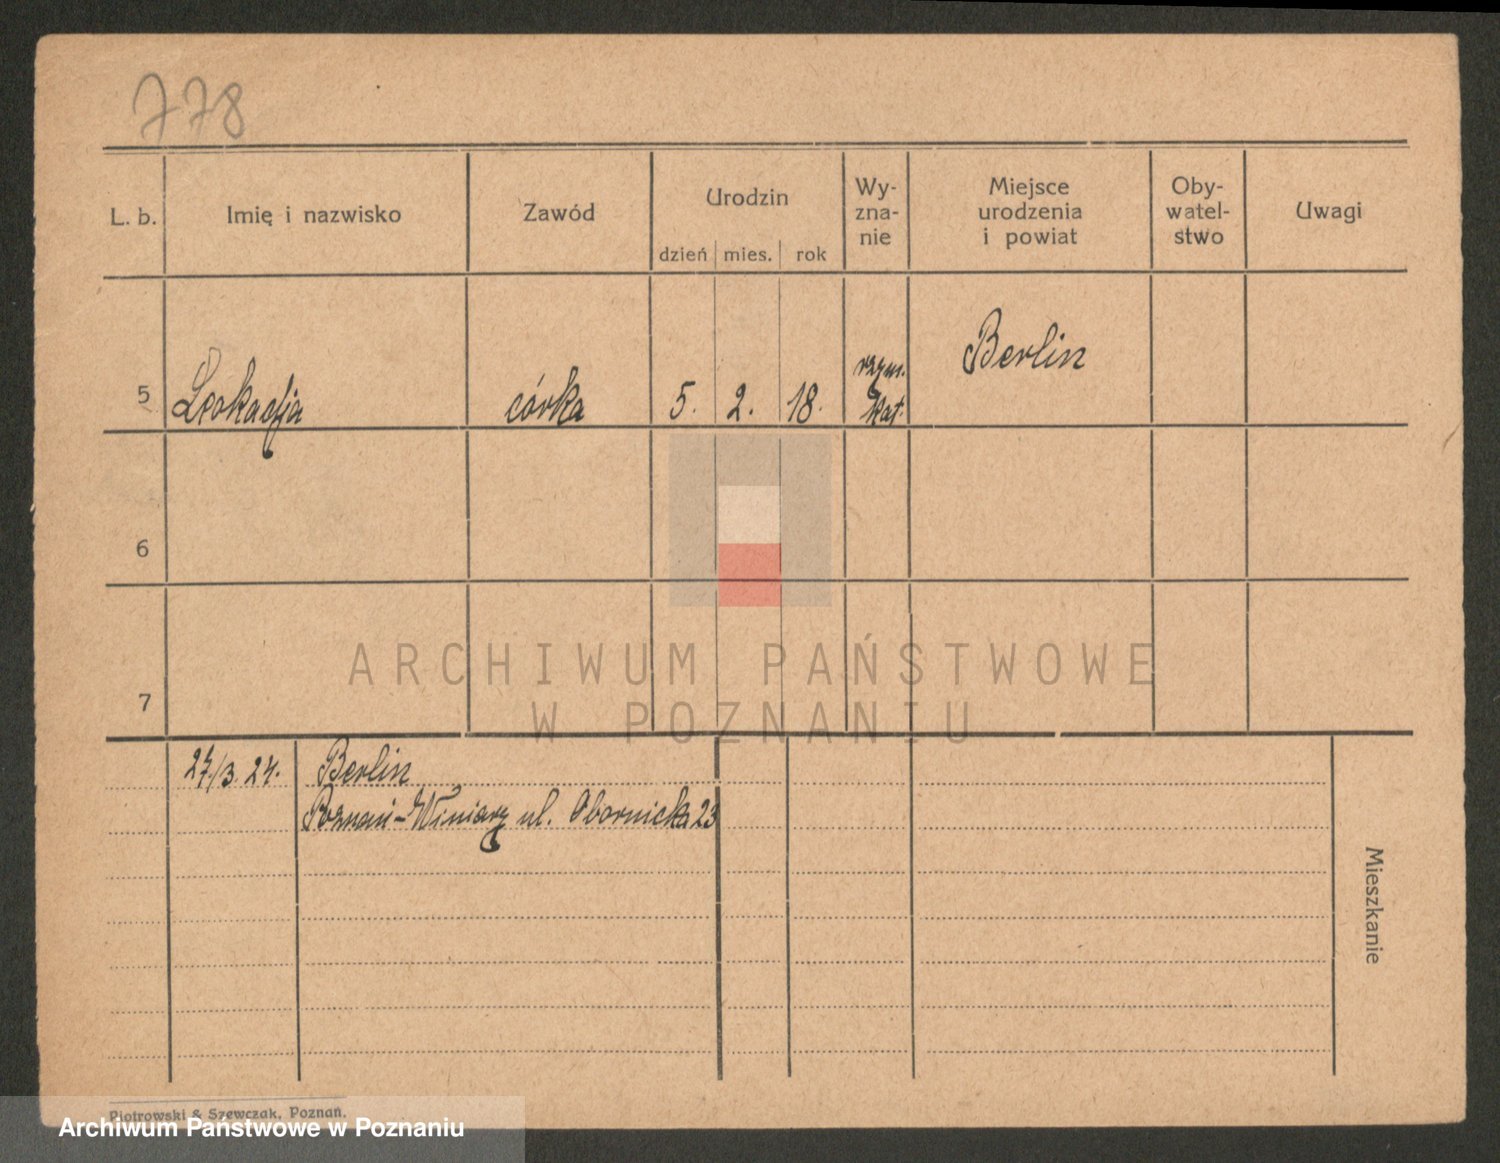 778
L. b.
Imię i nazwisko
Zawód
Urodzin
dzień mies. rok
Wy-
zna-
nie
Miejsce
urodzenia
i powiat
Oby-
watel-
stwo
Uwagi
5 Leokadja córka 5. 2. 18. rzym. kat. Berlin
6
7
ARCHIWUM PAŃSTWOWE
W POZNANIU
27./3. 24. Berlin
Poznań-Winiary ul. Obornicka 23
Mieszkanie
Piotrowski & Szewczak, Poznań.
Archiwum Państwowe w Poznaniu